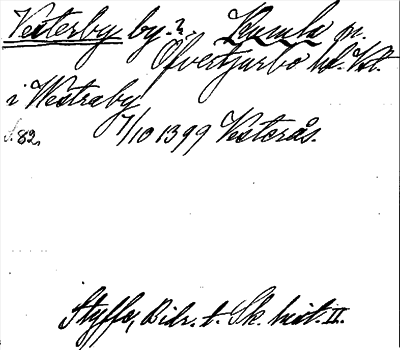 Vesterby by?. Kumla sn.
Öfvertjurbo hd. Vstm.
i Westraby
s. 82. 7/10 1399 Vesterås.
Styffe, Bidr. t. Sk. hist. II.